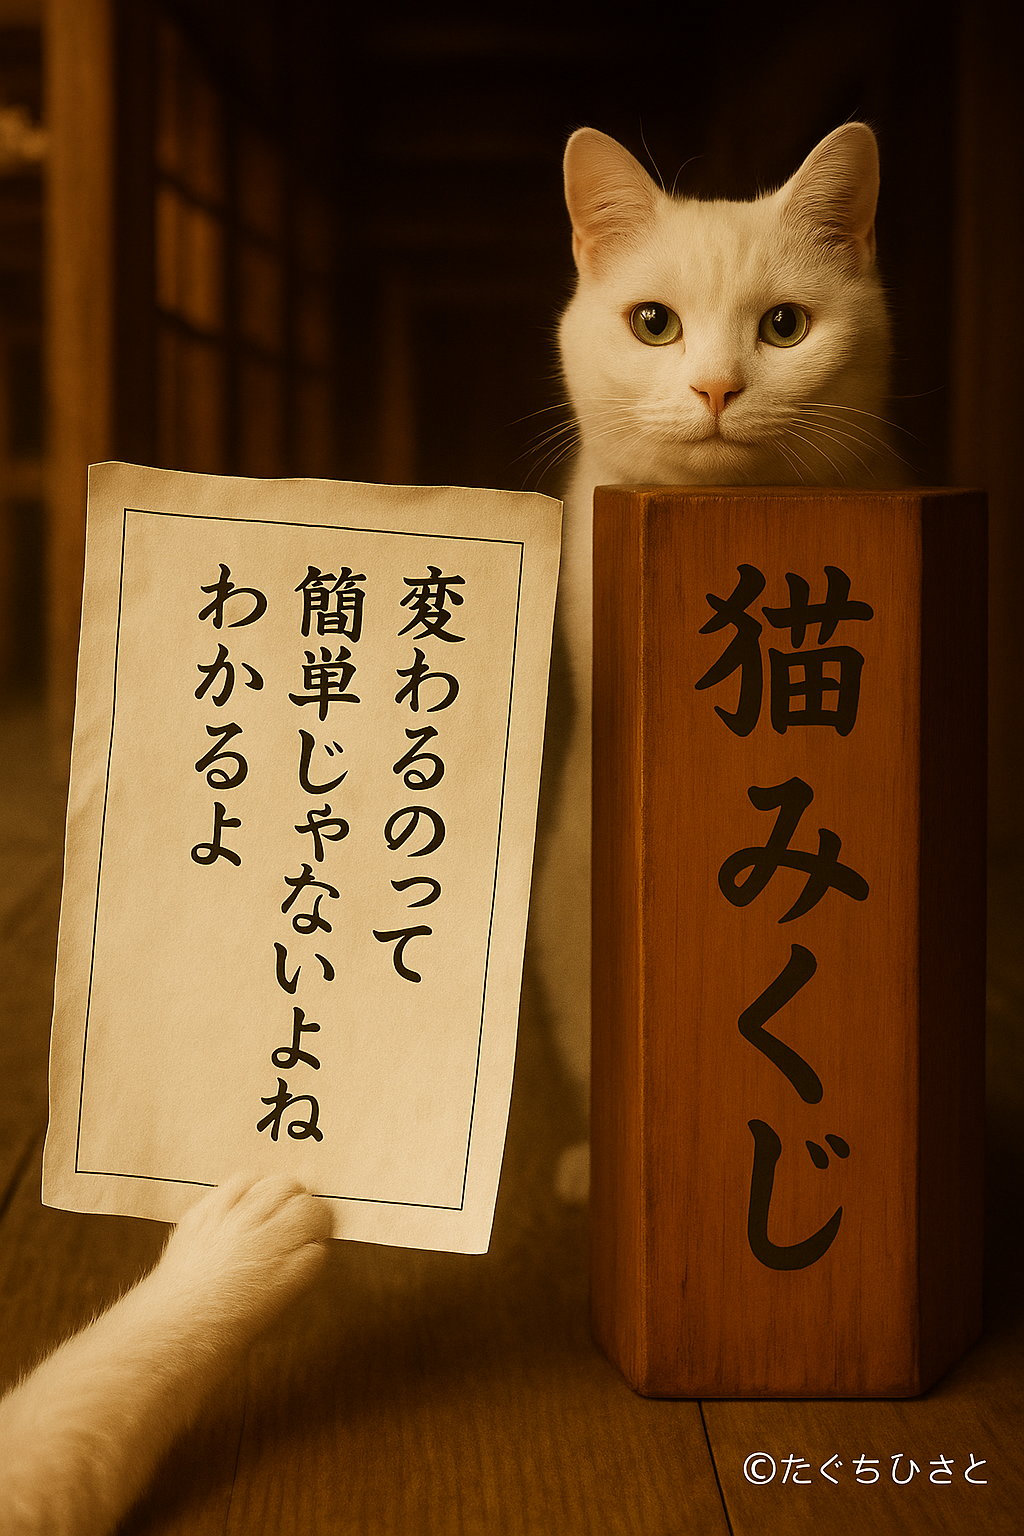 変わるのって
簡単じゃないよね
わかるよ
猫みくじ
©たぐちひさと